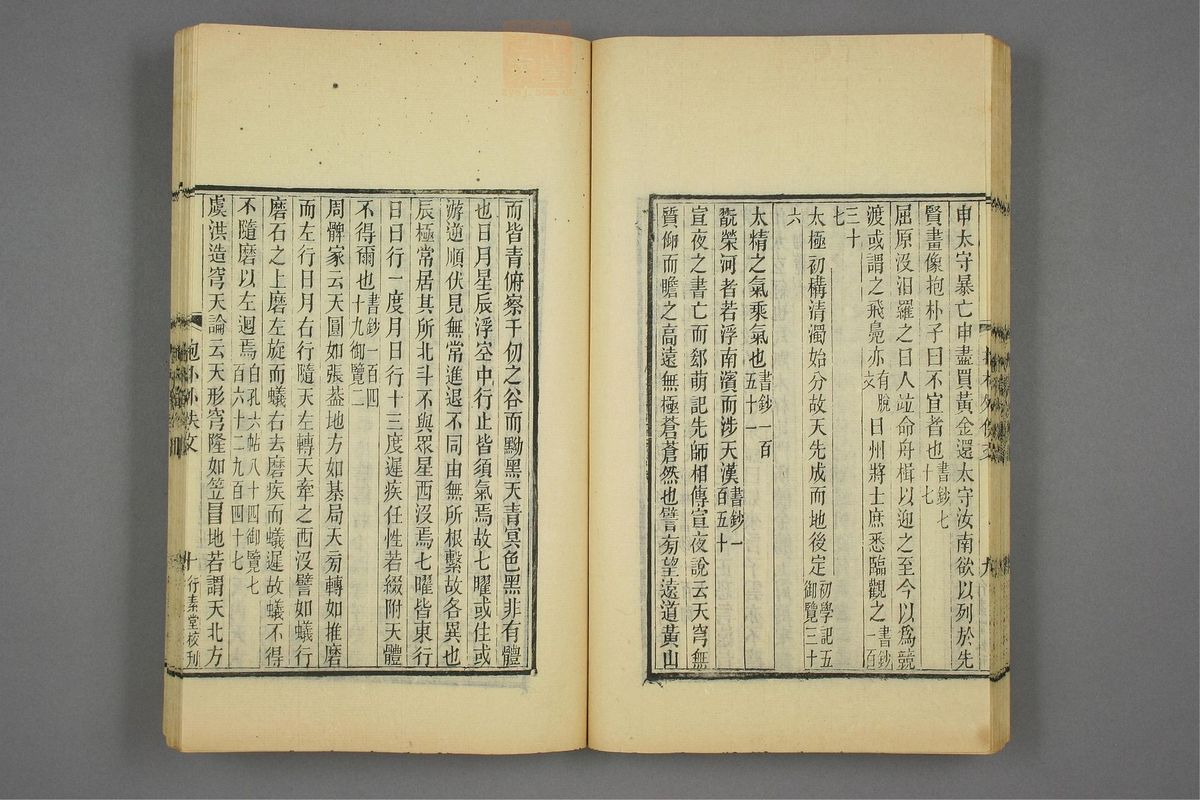 申太守暴亡申盡買黃金還太守汝南欲以列於先
賢畫像抱朴子曰不宜者也書鈔七十七
屈原沒汨羅之日人竝命舟楫以迎之至今以爲競
渡或謂之飛鳧亦有脫文日州將士庶悉臨觀之書鈔一百
三十七
太極初構清濁始分故天先成而地後定初學記五御覽三十
六
太精之氣乘氣也書鈔一百五十一
翫榮河者若浮南濱而涉天漢書鈔一百五十
宣夜之書亡而郄萌記先師相傳宣夜說云天穹無
質仰而瞻之高遠無極蒼蒼然也譬㫄望遠道黃山
而皆青俯察千仞之谷而黝黑天青冥色黑非有體
也日月星辰浮空中行止皆須氣焉故七曜或住或
游逆順伏見無常進退不同由無所根繫故各異也
辰極常居其所北斗不與眾星西沒焉七曜皆東行
日日行一度月日行十三度遲疾任性若綴附天體
不得爾也書鈔一百四十九御覽二
周髀家云天圓如張葢地方如棊局天㫄轉如推磨
而左行日月右行隨天左轉天牽之西沒譬如蟻行
磨石之上磨左旋而蟻右去磨疾而蟻遲故蟻不得
不隨磨以左迴焉白孔六帖八十四御覽七百六十二九百四十七
虞洪造穹天論云天形穹隆如笠冒地若謂天北方
十
行素堂校刊